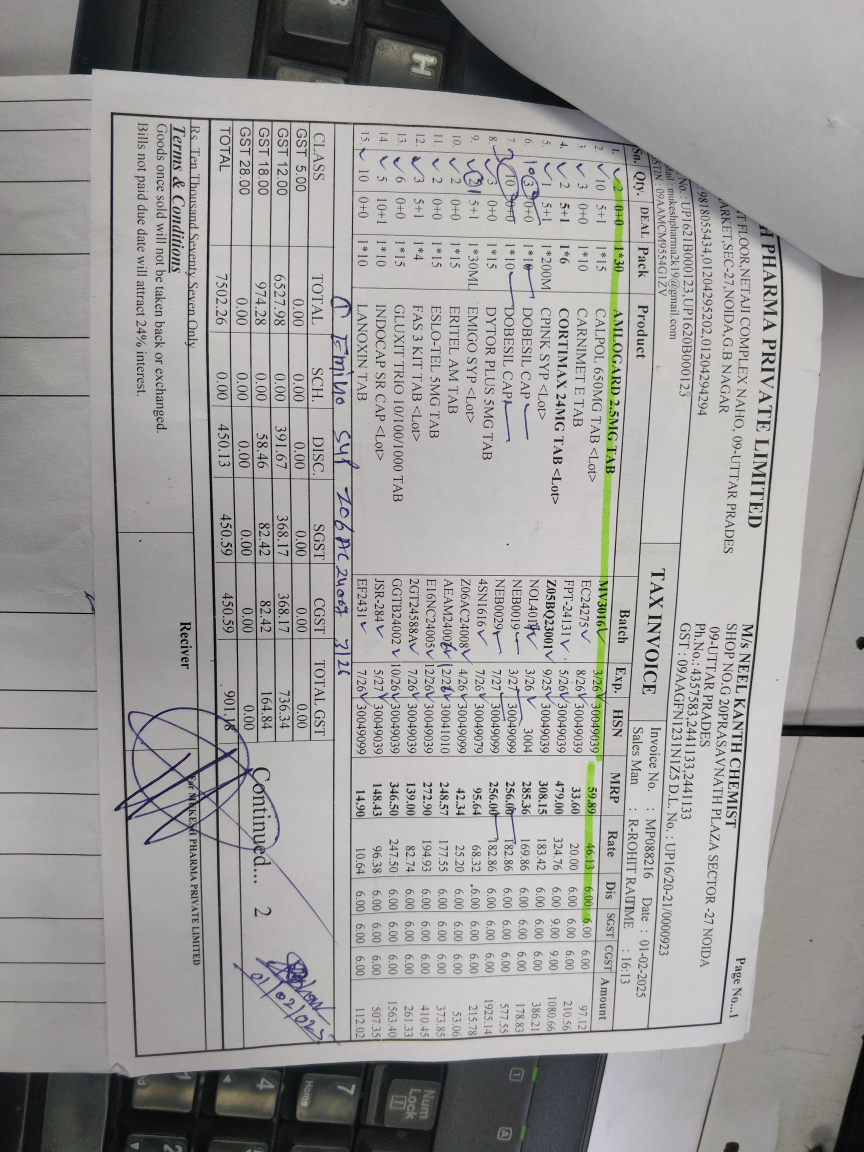 H PHARMA PRIVATE LIMITED
T FLOOR,NETAJI COMPLEX NAHO, 09-UTTAR PRADES
ARKET,SEC-27,NOIDA,G.B NAGAR
9818055434,01204295202,01204294294
No. : UP1621B000123,UP1620B000123
mail : mukeshpharma2k19@gmail.com
STIN : 09AAMCM9554G1ZV
Page No...1
M/s NEEL KANTH CHEMIST
SHOP NO.G 20PRASAVNATH PLAZA SECTOR -27 NOIDA
09-UTTAR PRADES
Ph.No.: 4357583,2441133,2441133
GST : 09AAGFN1231N1Z5 D.L. No. : UP16/20-21/0000923
TAX INVOICE
Invoice No. : MP088216 Date : 01-02-2025
Sales Man : R-ROHIT RAUTIME : 16:13
Sn. Qty. DEAL Pack Product Batch Exp. HSN MRP Rate Dis SGST CGST Amount
1. 2 0+0 1*30 AMLOGARD 2.5MG TAB MV3016 3/26 30049039 59.89 46.13 6.00 6.00 6.00 97.12
2. 10 5+1 1*15 CALPOL 650MG TAB <Lot> EC24275 8/26 30049039 33.60 20.00 6.00 6.00 6.00 210.56
3. 3 0+0 1*10 CARNIMET E TAB FPT-24131 5/26 30049039 479.00 324.76 6.00 9.00 9.00 1080.66
4. 2 5+1 1*6 CORTIMAX 24MG TAB <Lot> Z05BQ23001 9/25 30049039 308.15 183.42 6.00 6.00 6.00 386.21
5. 1 5+1 1*200M CPINK SYP <Lot> 3/26 3004 285.36 169.86 6.00 6.00 6.00 178.83
6. 3 0+0 1*10 DOBESIL CAP NEB0019 3/27 30049099 256.00 182.86 6.00 6.00 6.00 577.55
7. 10 0+0 1*10 DOBESIL CAP NEB0029 7/27 30049099 256.00 182.86 6.00 6.00 6.00 1925.14
8. 3 0+0 1*15 DYTOR PLUS 5MG TAB 4SN1616 7/26 30049079 95.64 68.32 6.00 6.00 6.00 215.78
9. 2 5+1 1*30ML EMIGO SYP <Lot> Z06AC24008 4/26 30049099 42.34 25.20 6.00 6.00 6.00 53.06
10. 2 0+0 1*15 ERITEL AM TAB 12/26 30041010 248.57 177.55 6.00 6.00 6.00 373.85
11. 2 0+0 1*15 ESLO-TEL 5MG TAB E16NC24005 12/26 30049039 272.90 194.93 6.00 6.00 6.00 410.45
12. 3 5+1 1*4 FAS 3 KIT TAB <Lot> 2GT24588A 7/26 30049039 139.00 82.74 6.00 6.00 6.00 261.33
13. 6 0+0 1*15 GLUXIT TRIO 10/100/1000 TAB GGTB24002 10/26 30049039 346.50 247.50 6.00 6.00 6.00 1563.40
14. 5 10+1 1*10 INDOCAP SR CAP <Lot> JSR-284 5/27 30049039 148.43 96.38 6.00 6.00 6.00 507.35
15. 10 0+0 1*10 LANOXIN TAB EF2431 7/26 30049099 14.90 10.64 6.00 6.00 6.00 112.02
① Emigo Syp Z06AC24007 3/26
CLASS TOTAL SCH. DISC. SGST CGST TOTAL GST
GST 5.00 0.00 0.00 0.00 0.00 0.00 0.00
GST 12.00 6527.98 0.00 391.67 368.17 368.17 736.34
GST 18.00 974.28 0.00 58.46 82.42 82.42 164.84
GST 28.00 0.00 0.00 0.00 0.00 0.00 0.00
TOTAL 7502.26 0.00 450.13 450.59 450.59 901.18
Continued... 2
01/02/025
Rs. Ten Thousand Seventy Seven Only
Terms & Conditions
Goods once sold will not be taken back or exchanged.
Bills not paid due date will attract 24% interest.
Reciver
For MUKESH PHARMA PRIVATE LIMITED
H
7
Home
4
Num
Lock
1
A